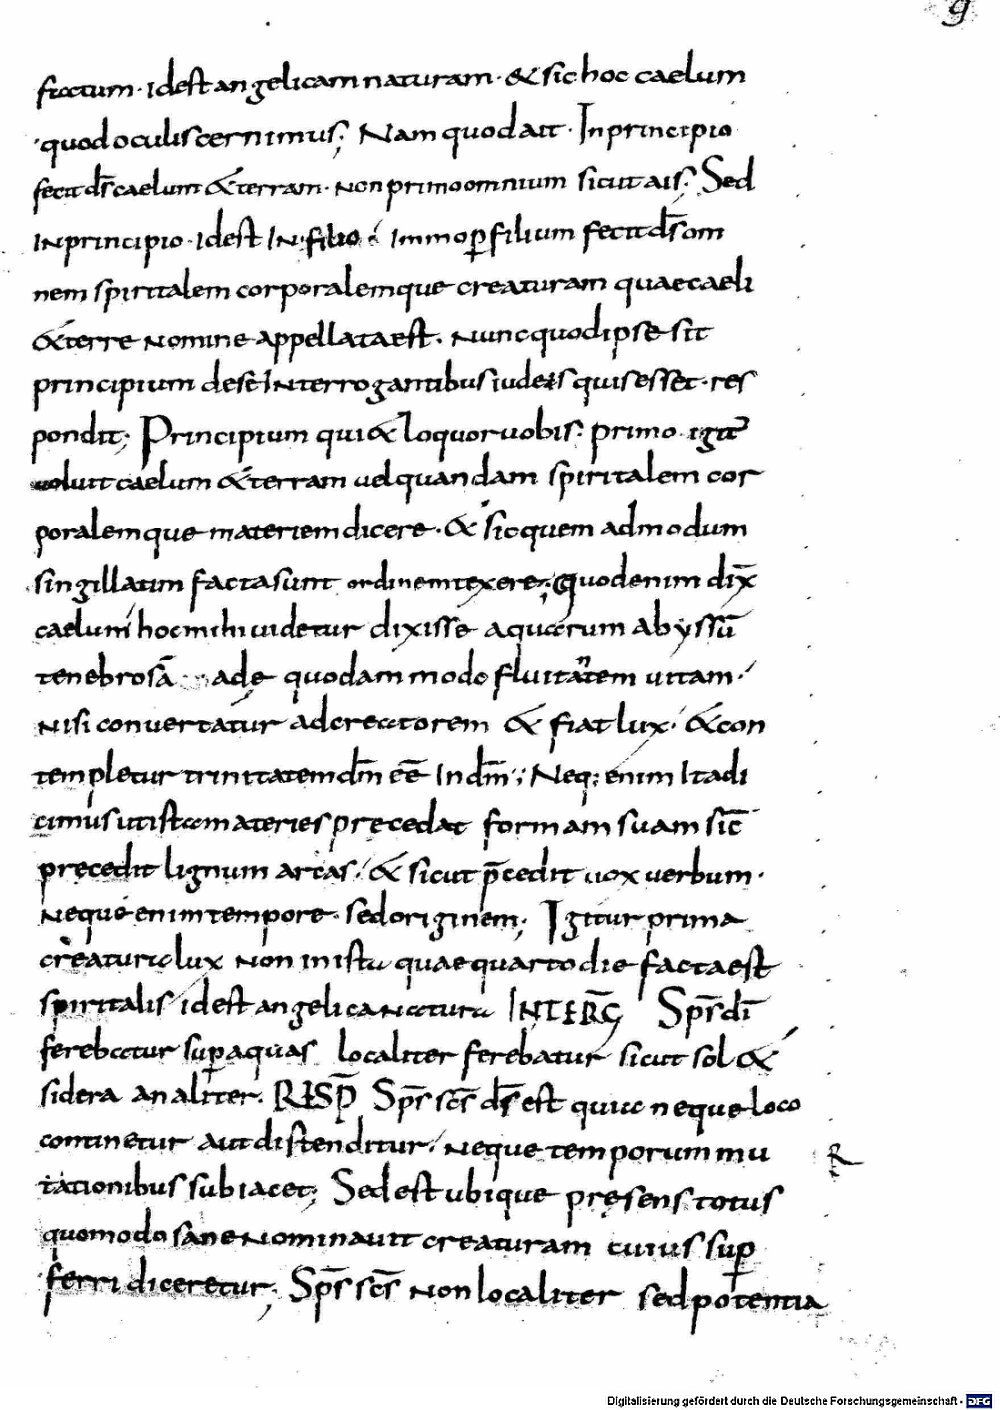 9
factum · Idest angelicam naturam · & sic hoc caelum
quod oculis cernimus; Nam quod ait · In principio
fecit ds̄ caelum & terram · non primo omnium sicut ais; Sed
in principio · Idest In filio · Immo ꝑ filium fecit ds̄ om
nem spiritalem corporalemque creaturam quae caeli
& terre nomine appellata est · nunc quod ipse sit
principium de se Interrogantibus iudeis quis esset · res
pondit; Principium qui & loquor uobis · primo igit̄
uoluit caelum & terram uel quandam spiritalem cor
poralemque materiem dicere · & sic quem admodum
singillatim facta sunt ordinem texere; Quod enim dix̄
caelum hoc mihi uidetur dixisse aquarum abyssū
tenebrosā ade quodam modo fluitantem uitam ·
nisi conuertatur ad creatorem & fiat lux · & con
templetur trinitatem dm̄ eē In dm̄; Neq; enim Ita di
cimus ut ista materies pręcedat formam suam sic̄
pręcedit lignum arcas · & sicut p̄cedit uox uerbum ·
neque enim tempore · sed originem; Igitur prima
creatura lux non in ista quae quarto die facta est
spiritalis idest angelica natura INTERG̅ Sps̄ dī
ferebatur suꝑ aquas localiter ferebatur sicut sol &
sidera an aliter · RESP̅ Sps̄ scs̄ ds̄ est qui neque loco
continetur aut distenditur · neque temporum mu
R
tationibus subiacet; Sed est ubique pręsens totus
quomodo sane nominauit creaturam cuius suꝑ
ferri diceretur; Sps̄ scs̄ non localiter sed potentia
Digitalisierung gefördert durch die Deutsche Forschungsgemeinschaft - DFG